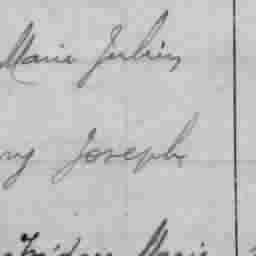 Marie Julien
ry Joseph
Marie